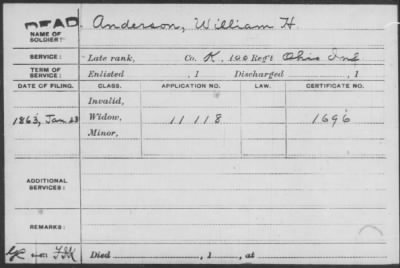 DEAD. Anderson, William H.
NAME OF SOLDIER:
SERVICE: Late rank, Co. K, 100 Reg't Ohio Inf
TERM OF SERVICE: Enlisted , 1 Discharged , 1
DATE OF FILING. CLASS. APPLICATION NO. LAW. CERTIFICATE NO.
Invalid,
1863, Jan. 23 Widow, 11118 1696
Minor,
ADDITIONAL SERVICES:
REMARKS:
Died , 1 , at